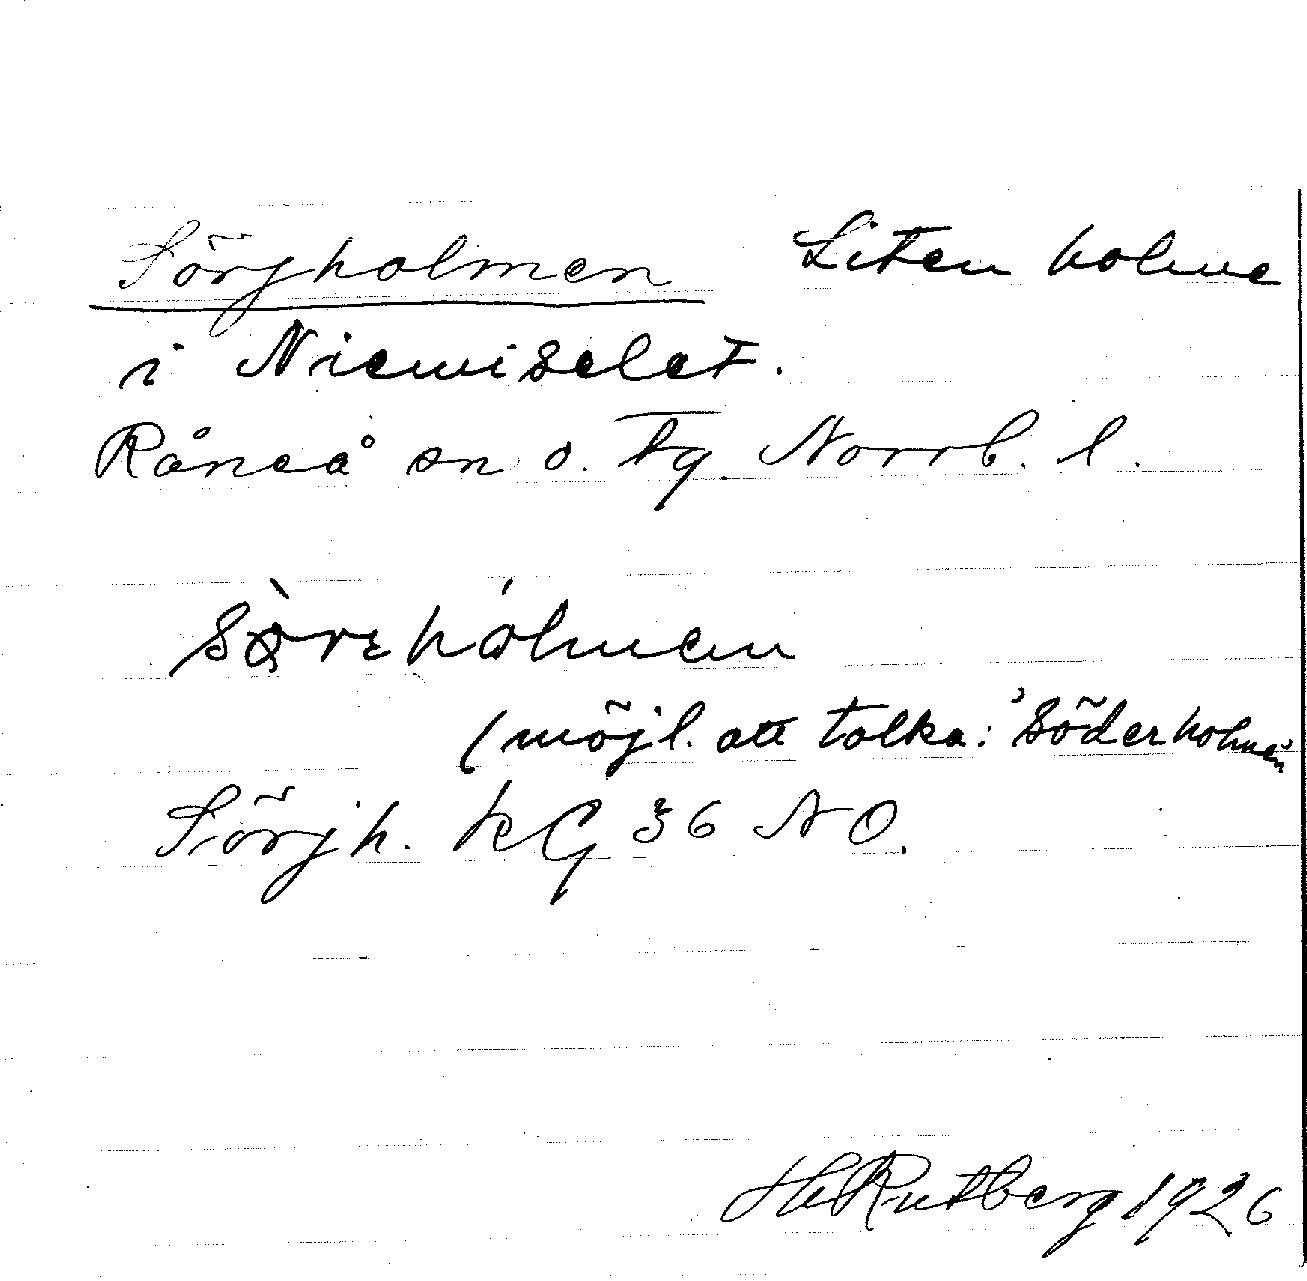 Sörjholmen Liten holme
i Niemiselet.
Råneå sn o. tg. Norrb. l.
(möjl. att tolka: 'Söderholmen'
Sörjh. KG 36 NO.
HRutberg 1926